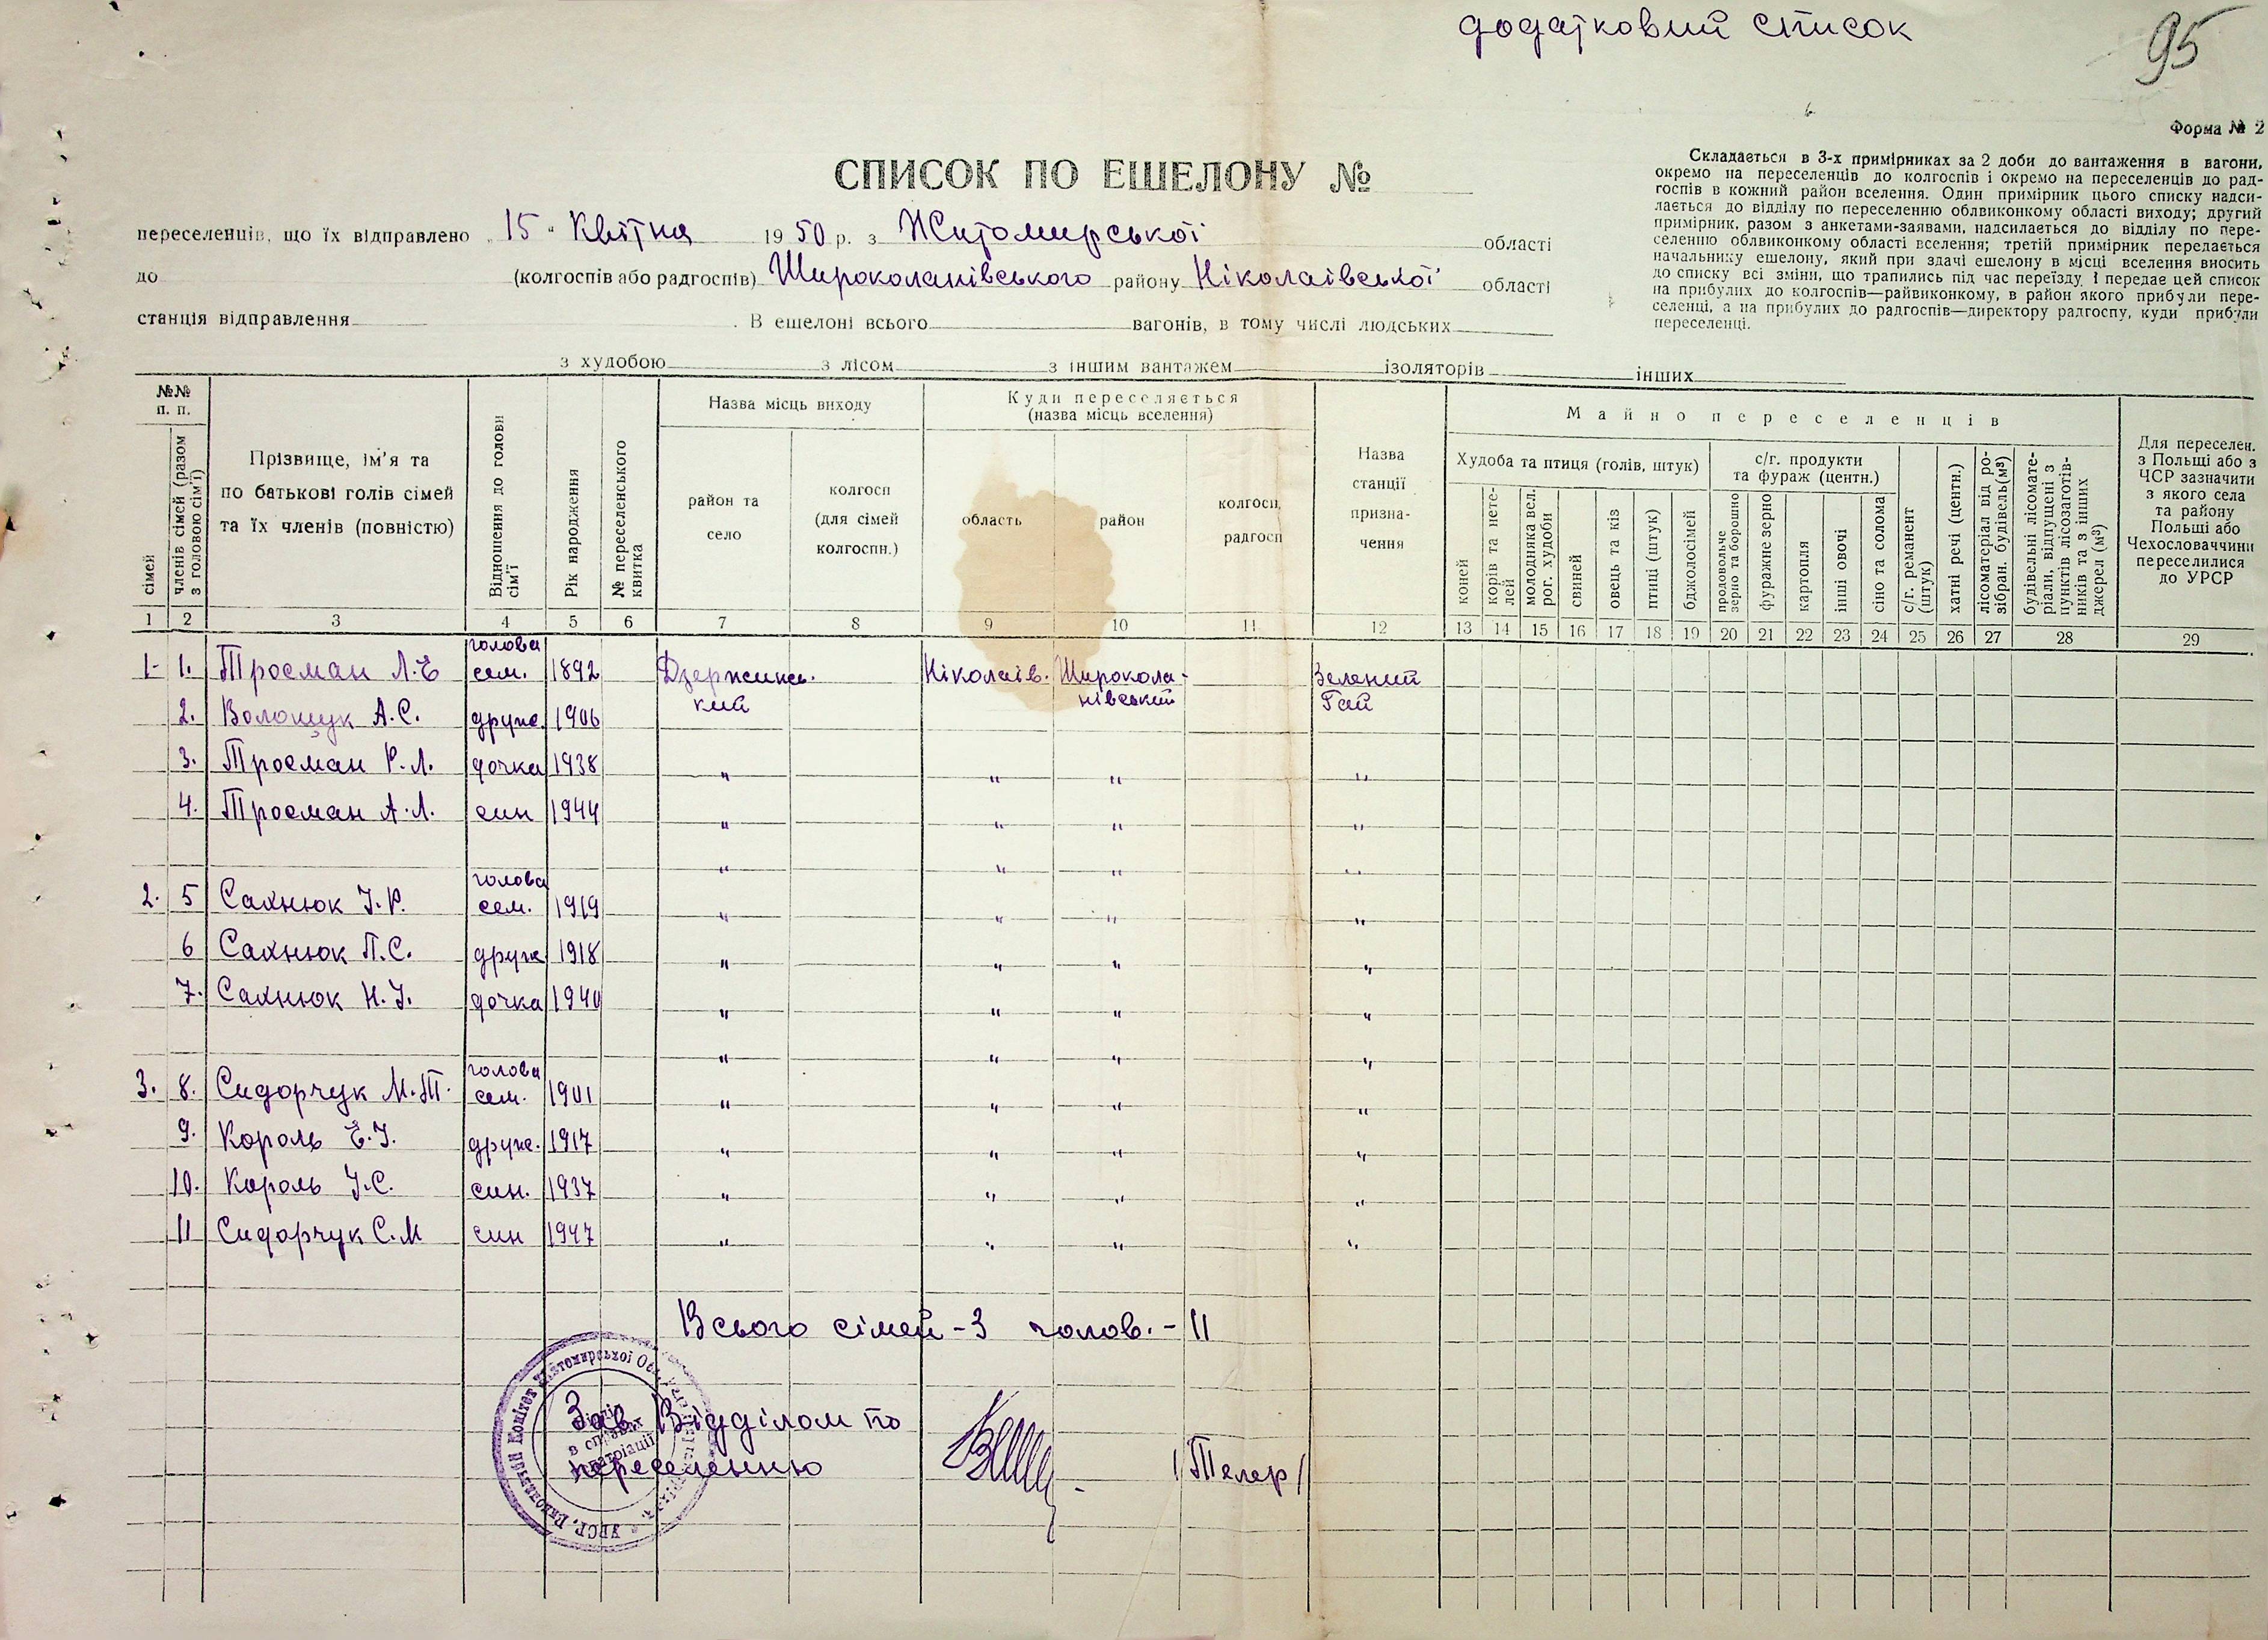 додатковий список
95
Форма № 2
СПИСОК ПО ЕШЕЛОНУ №
Складається в 3-х примірниках за 2 доби до вантаження в вагони,
окремо на переселенців до колгоспів і окремо на переселенців до рад-
госпів в кожний район вселення. Один примірник цього списку надси-
лається до відділу по переселенню облвиконкому області виходу; другий
примірник, разом з анкетами-заявами, надсилається до відділу по пере-
селенню облвиконкому області вселення; третій примірник передається
начальнику ешелону, який при здачі ешелону в місці вселення вносить
до списку всі зміни, що трапились під час переїзду, і передає цей список
на прибулих до колгоспів—райвиконкому, в район якого прибули пере-
селенці, а на прибулих до радгоспів—директору радгоспу, куди прибули
переселенці.
переселенців, що їх відправлено „15“ Квітня 1950 р. з Житомирської області
до (колгоспів або радгоспів) Широколанівського району Ніколаівської області
станція відправлення . В ешелоні всього вагонів, в тому числі людських
з худобою з лісом з іншим вантажем ізоляторів інших
№№ п. п.
сімей
членів сімей (разом з головою сім'ї)
Прізвище, ім'я та
по батькові голів сімей
та їх членів (повністю)
Відношення до голови сім'ї
Рік народження
№ переселенського квитка
Назва місць виходу
район та село
колгосп
(для сімей
колгоспн.)
Куди переселяється
(назва місць вселення)
область
район
колгосп,
радгосп
Назва
станції
призна-
чення
Майно переселенців
Худоба та птиця (голів, штук)
коней
корів та нете-
лей
молодняка вел.
рог. худоби
свиней
овець та кіз
птиці (штук)
бджолосімей
с/г. продукти
та фураж (центн.)
продовольче
зерно та борошно
фуражне зерно
картопля
інші овочі
сіно та солома
с/г. реманент
(штук)
хатні речі (центн.)
лісоматеріал від ро-
зібран. будівель (м³)
будівельні лісомате-
ріали, відпущені з
пунктів лісозаготів-
ників та з інших
джерел (м³)
Для переселен.
з Польщі або з
ЧСР зазначити
з якого села
та району
Польщі або
Чехословаччини
переселилися
до УРСР
1 2 3 4 5 6 7 8 9 10 11 12 13 14 15 16 17 18 19 20 21 22 23 24 25 26 27 28 29
1- 1. Тросман Л.Е голова сем. 1892 Дзержинс. кий Ніколаів. Широкола- нівський Зелений Гай
2. Волощук А.С. друж. 1906
3. Тросман Р.Л. дочка 1938 " " " "
4. Тросман А.Л. син 1944 " " " "
" " " "
2. 5 Сахнюк І.Р. голова сем. 1919 " " " "
6 Сахнюк П.С. друж 1918 " " " "
7. Сахнюк Н.І. дочка 1940 " " " "
" " " "
3. 8. Сидорчук М.Т. голова сем. 1901 " " " "
9. Король Є.І. друж. 1917 " " " "
10. Король І.С. син. 1937 " " " "
11 Сидорчук С.М син 1947 " " " "
Всього сімей - 3 чолов. - 11
Зав. Відділом по
переселенню /Телер/